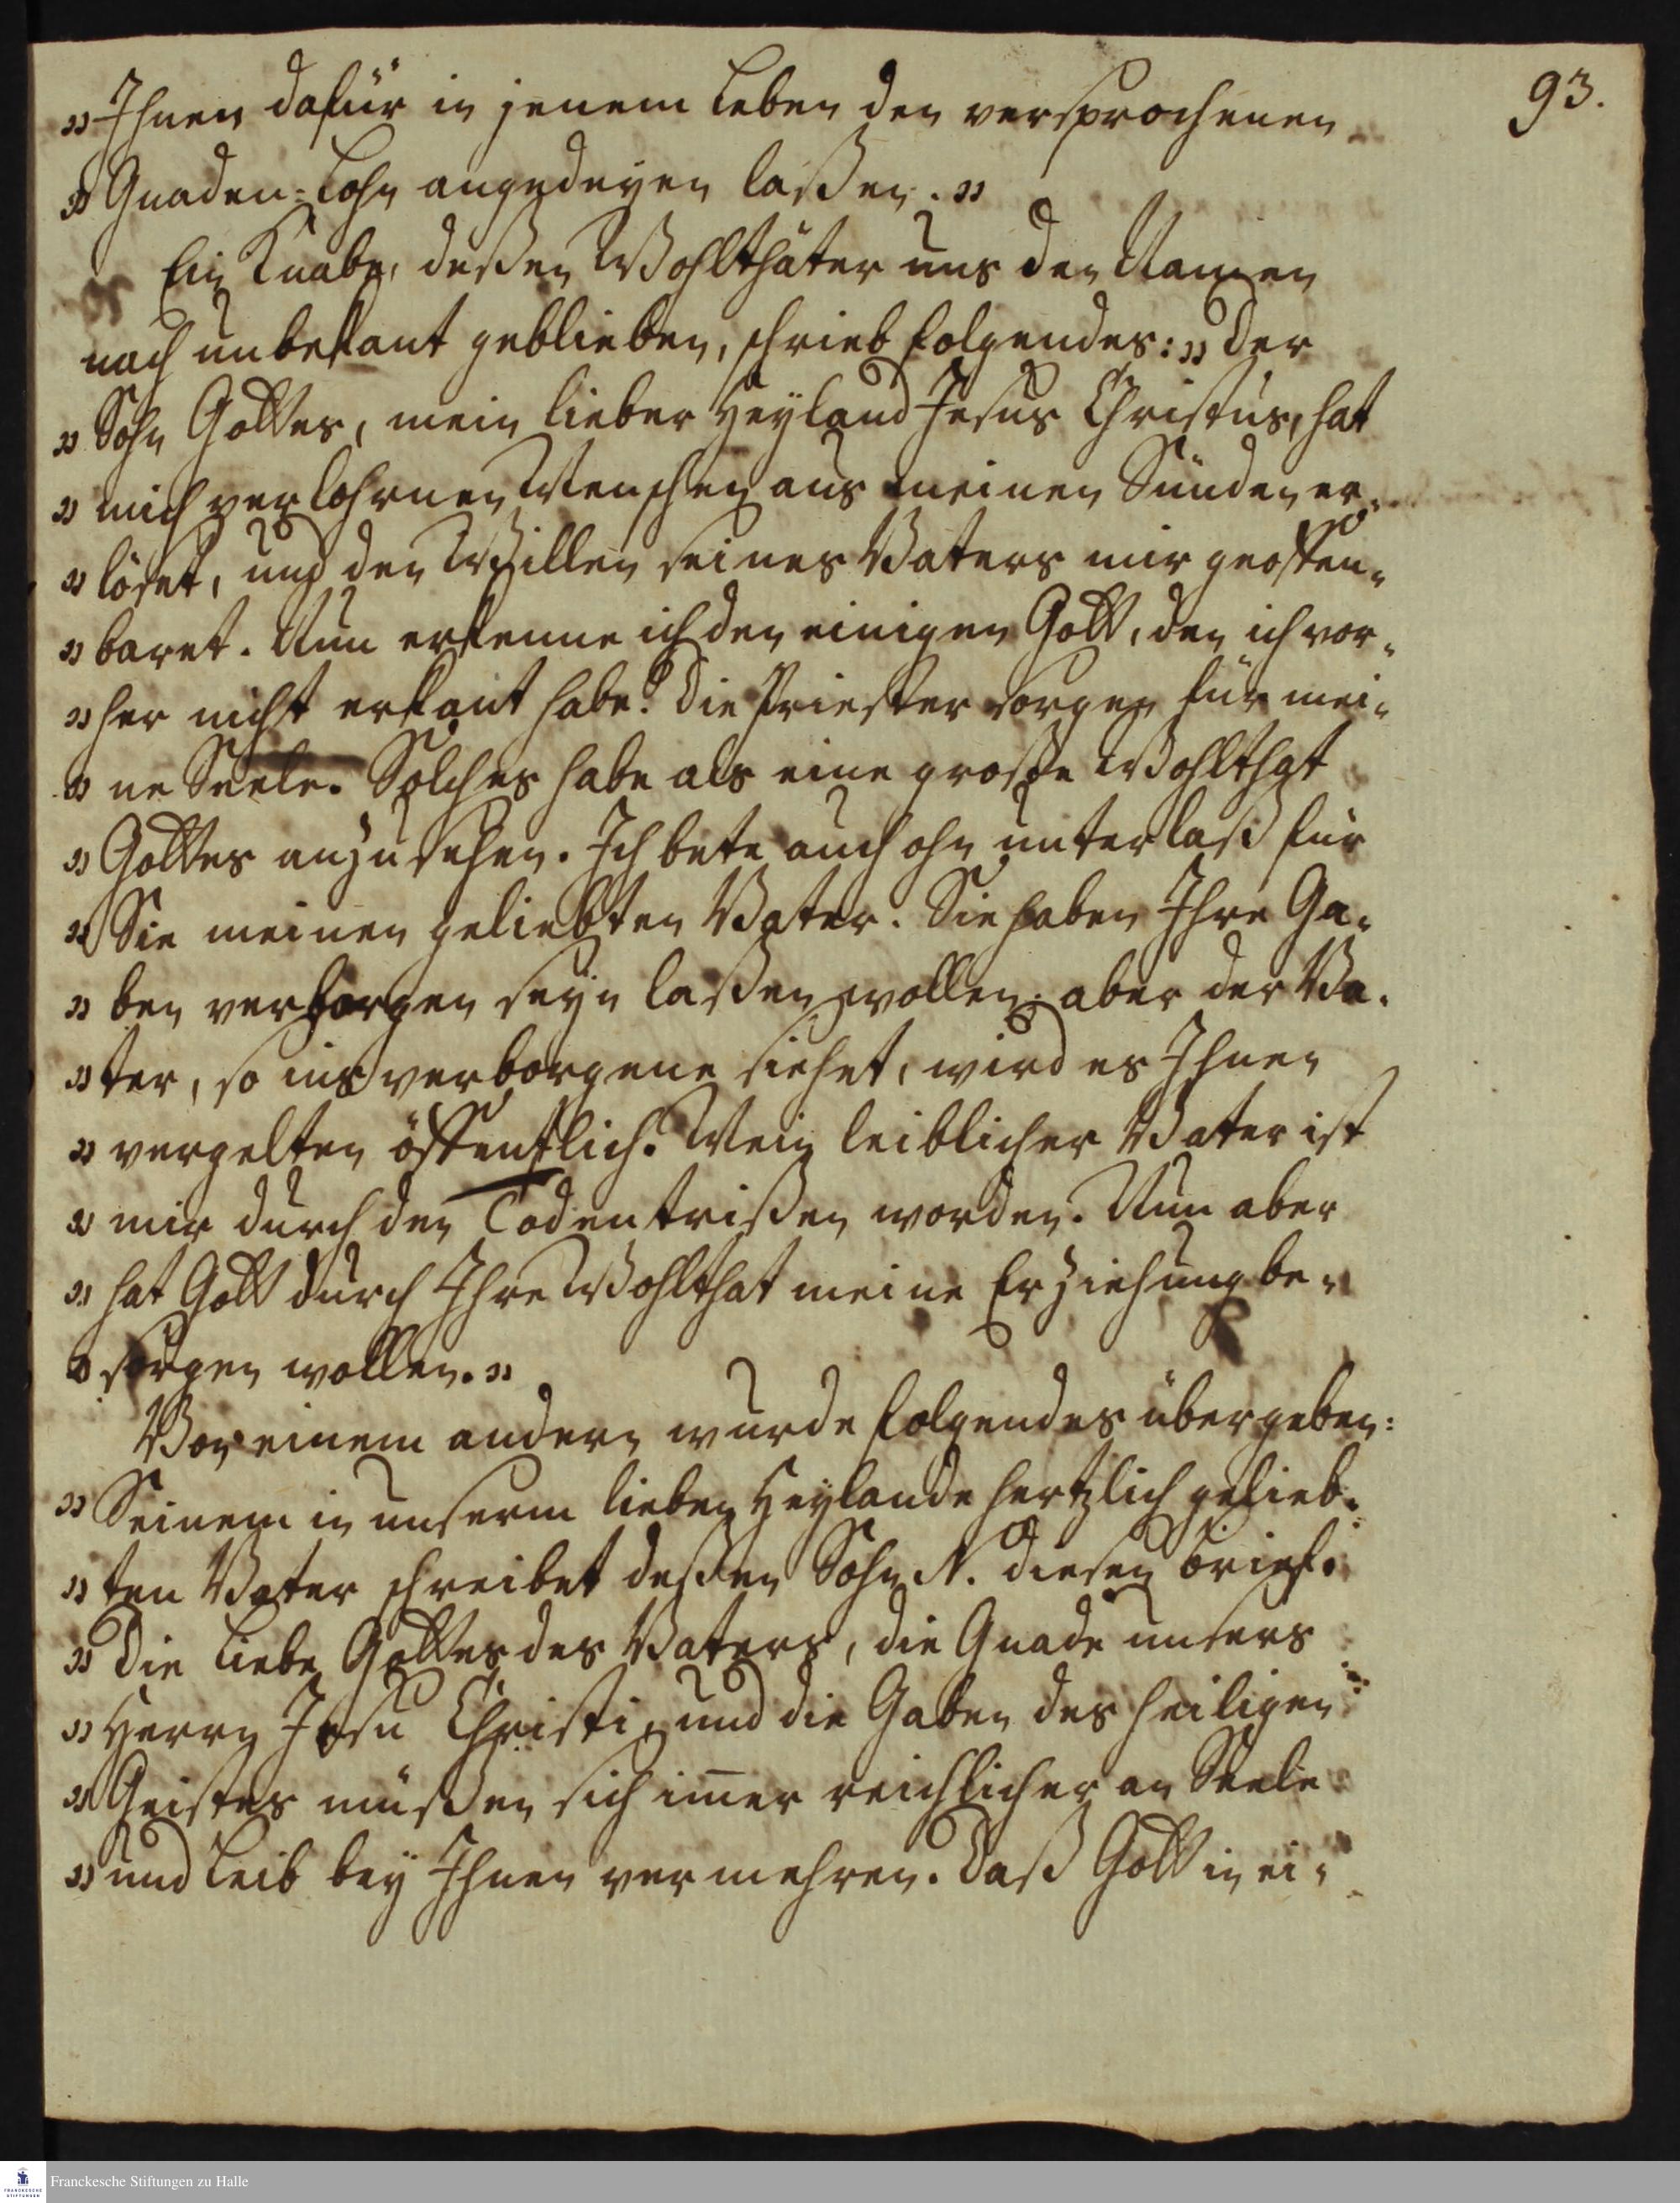 93.
„Ihnen dafür in jenem Leben den versprochenen
„Gnaden-Lohn angedeyen laßen.„
Ein Knabe, deßen Wohlthäter uns dem Namen
nach unbekant geblieben, schrieb folgendes: „Der
„Sohn Gottes, mein lieber Heyland Jesus Christus, hat
„mich verlohrnen Menschen aus meinen Sünden er-
„löset, und den Willen seines Vaters mir geoffen-
„baret. Nun erkenne ich den einigen Gott, den ich vor-
„her nicht erkant habe. Die Priester sorgen für mei-
„ne Seele. Solches habe als eine große Wohlthat
„Gottes anzusehen. Ich bete auch ohn unterlaß für
„Sie meinen geliebten Vater. Sie haben Ihre Ga-
„ben verborgen seyn laßen wollen; aber der Va-
„ter, so ins verborgene siehet, wird es Ihnen
„vergelten öffentlich. Mein leiblicher Vater ist
„mir durch den Tod entrißen worden. Nun aber
„hat Gott durch Ihre Wohlthat meine Erziehung be-
„sorgen wollen.„
Von einem andern wurde folgendes übergeben:
„Seinem in unserm lieben Heylande hertzlich gelieb-
„ten Vater schreibet deßen Sohn N. diesen Brief.
„Die Liebe Gottes des Vaters, die Gnade unsers
„Herrn Jesu Christi, und die Gaben des heiligen
„Geistes müßen sich im̅er reichlicher an Seele
„und Leib bey Ihnen vermehren. Daß Gott in ei-
Franckesche Stiftungen zu Halle